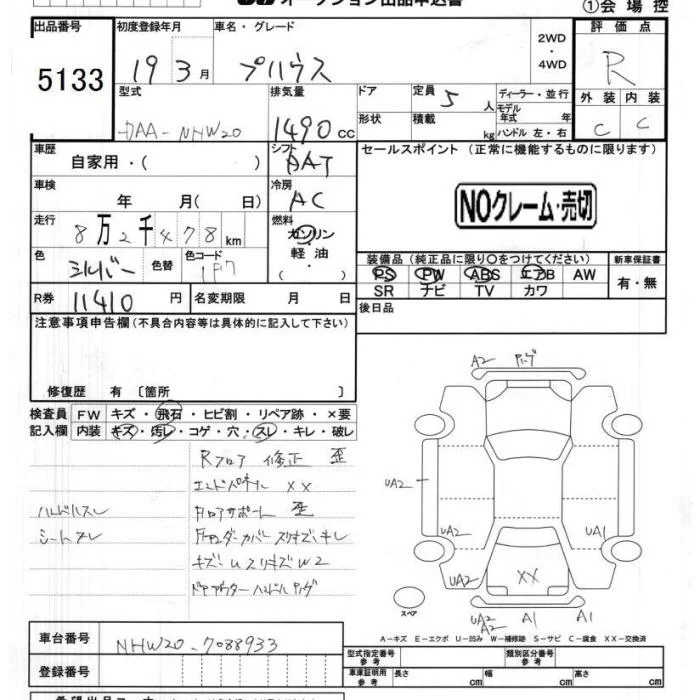 オークション出品申込書
①会場控
出品番号 初度登録年月 車名・グレード 2WD・4WD 評価点
5133 19 3月 プリウス R
型式 排気量 ドア 定員 5人 ディーラー・並行 外装 内装
DAA-NHW20 1490cc 形状 積載 kg モデル年式 年 ハンドル 左・右 C C
車歴 自家用・( ) シフト AAT セールスポイント (正常に機能するものに限ります)
車検 年 月( 日) 冷房 AC
NOクレーム・売切
走行 8万2千478km 燃料 ガソリン 軽油・( )
色 シルバー 色替 色コード 1F7
装備品 (純正品に限り○をつけてください) 新車保証書
PS PW ABS エアB AW 有・無
SR ナビ TV カワ
R券 11410円 名変期限 月 日 後日品
注意事項申告欄(不具合内容等は具体的に記入して下さい)
修復歴 有 [箇所 ]
検査員 FW キズ・飛石・ヒビ割・リペア跡・×要
記入欄 内装 キズ・汚レ・コゲ・穴・スレ・キレ・破レ
Rフロア 修正 歪
エンドパネル XX
ハンドルスレ フロアサポート 歪
シートスレ Fアンダーカバー スリキズ・キレ
キズ・Uスリキズ W2
ドアアウターハンドル
A2
UA2
UA2 UA1
UA2 XX
スペア
UA2 A2 A1 A1
A-キズ E-エクボ U-凹み W-補修跡 S-サビ C-腐食 XX-交換済
車台番号 NHW20-7088933 型式指定番号 参考 類別区分番号 参考
登録番号 車庫証明用 参考 長さ cm 幅 cm 高さ cm
希望出品コーナー